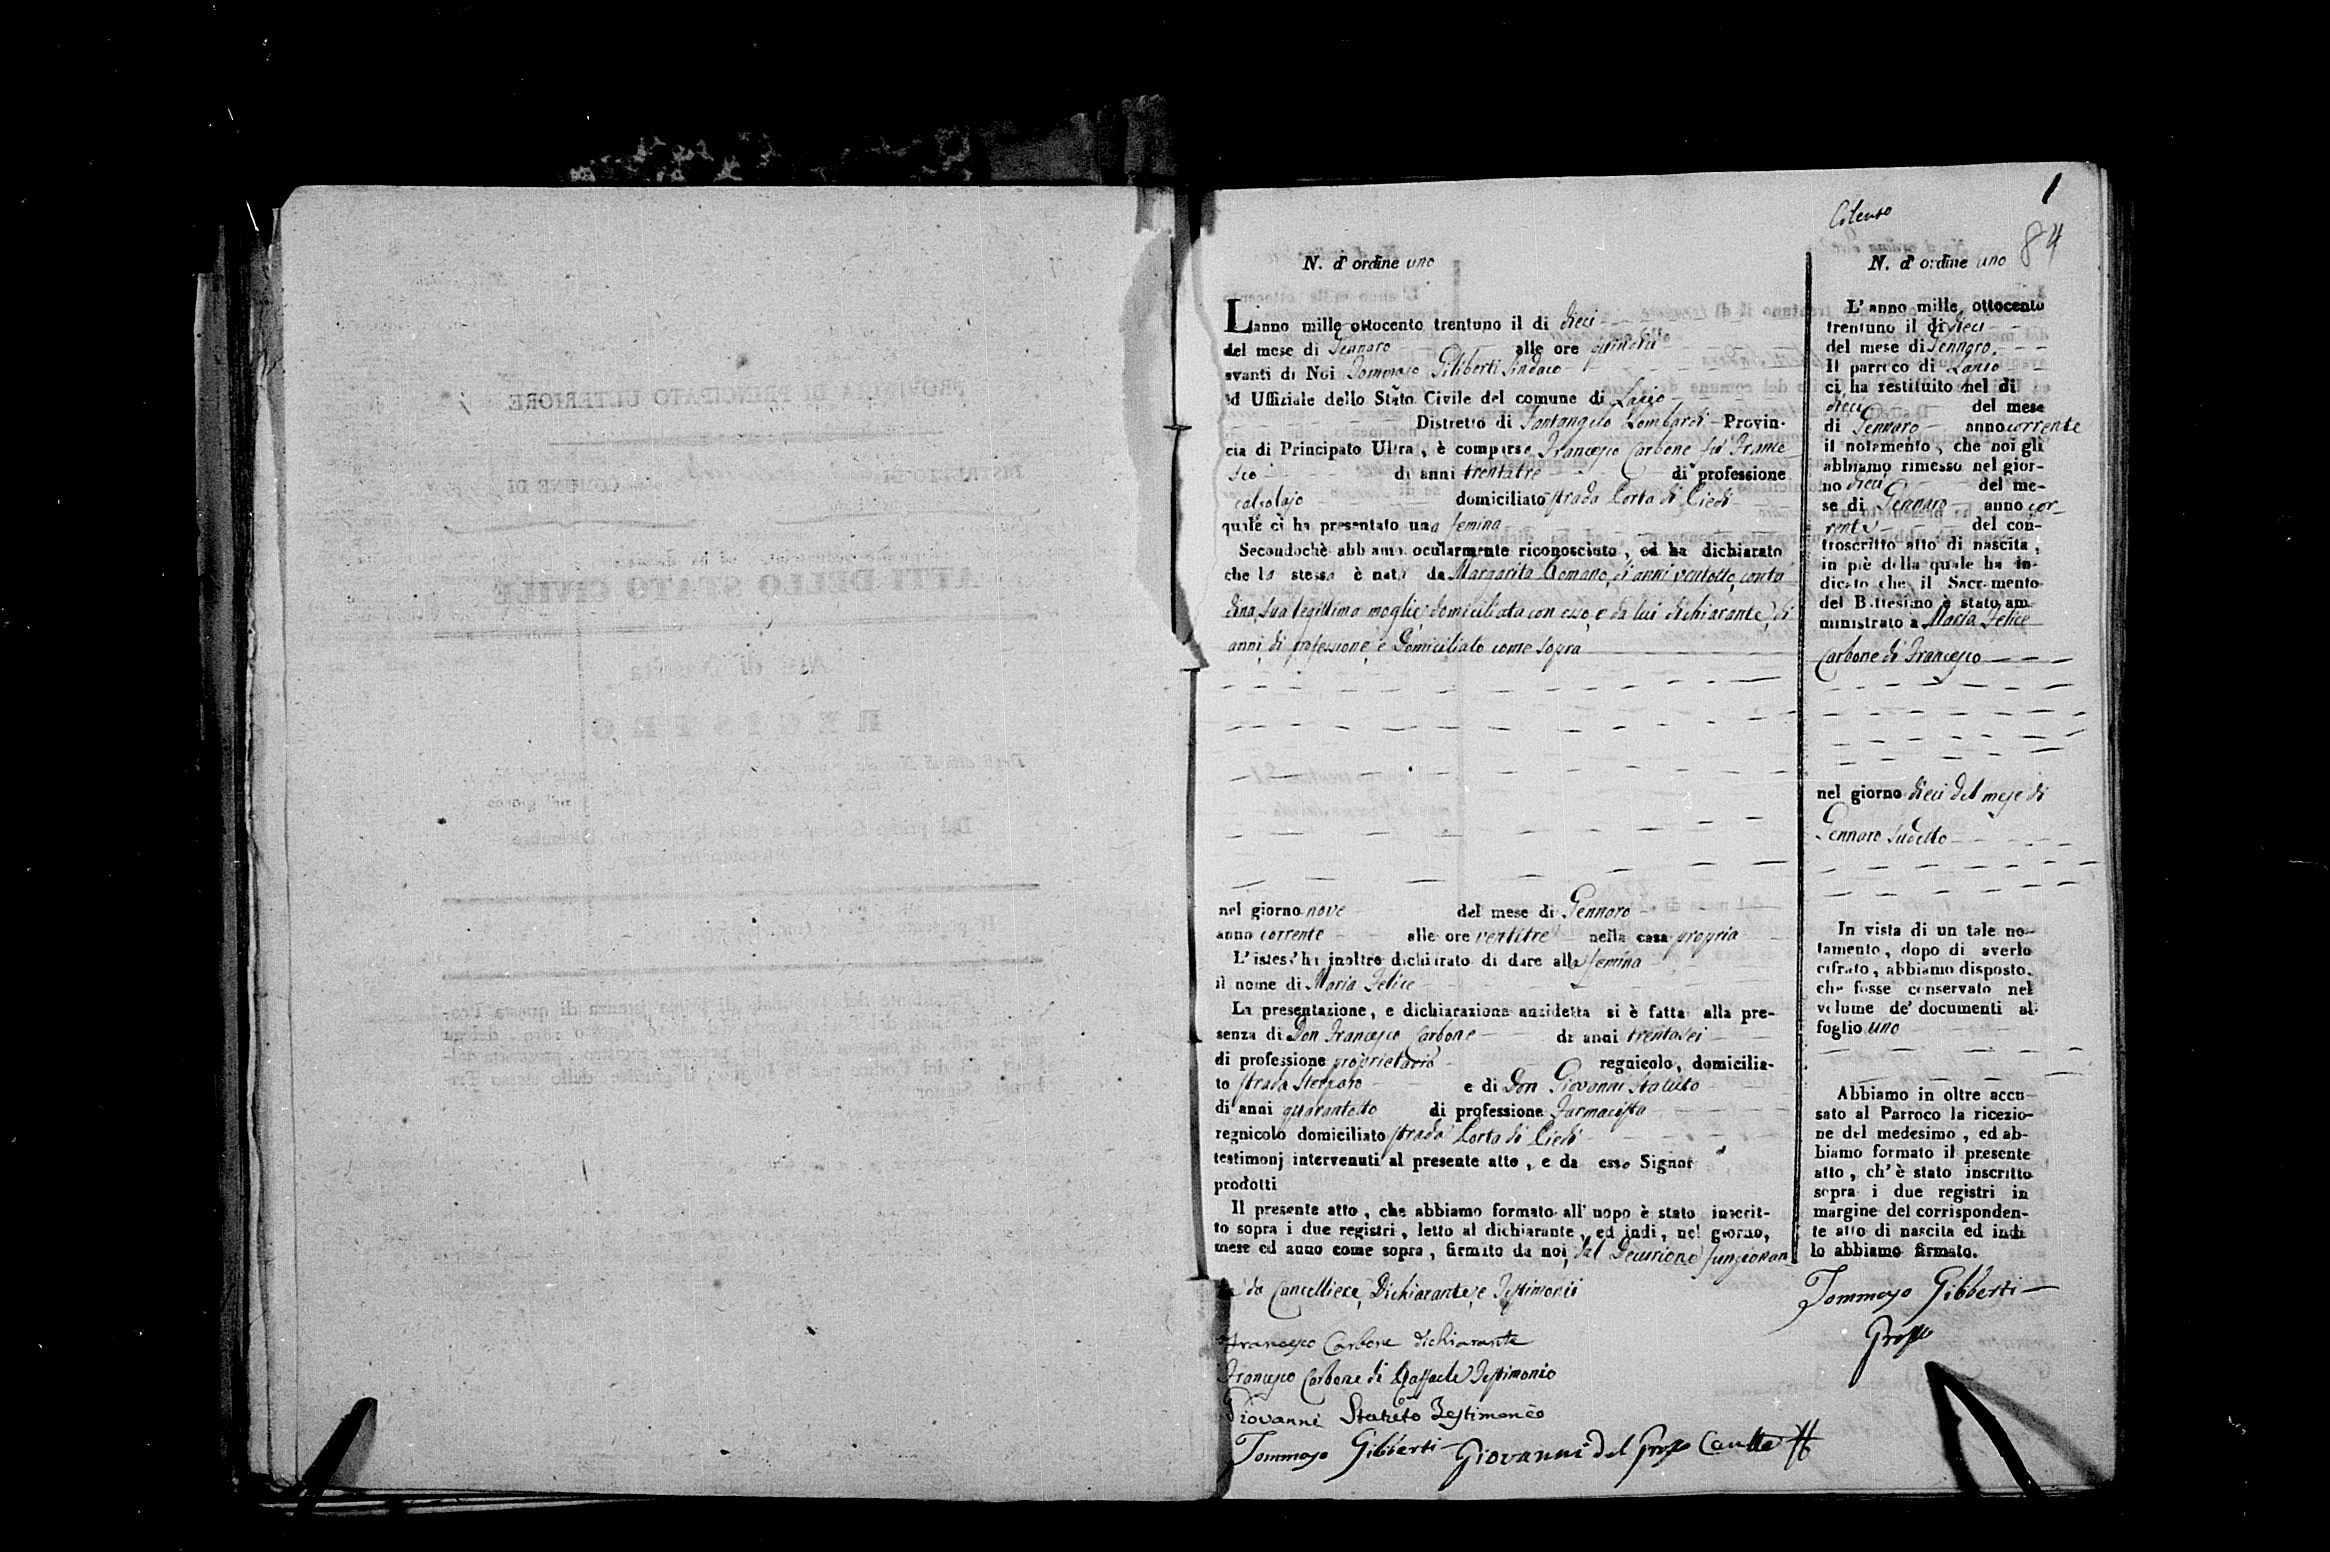 1
84
N. d'ordine uno
L'anno mille ottocento trentuno il dì dieci
del mese di Gennaro alle ore quindici
avanti di Noi Tommaso Giliberti Sindaco
ed Uffiziale dello Stato Civile del comune di
Distretto di Santangelo Lombardi Provin-
cia di Principato Ultra, è comparso Francesco Carbone fu France
sco di anni trentatre di professione
calzolajo domiciliato strada Porta di Piedi
quale ci ha presentato una femina
Secondochè abbiamo ocularmente riconosciuto, ed ha dichiarato
che la stessa è nata da Margarita Romano, di anni ventotto, conta
dina, sua legittima moglie domiciliata con esso, e da lui dichiarante, di
anni, di professione, e Domiciliato come sopra
nel giorno nove del mese di Gennaro
anno corrente alle ore ventitre nella casa propria
L'istess' ha inoltre dichiarato di dare alla femina
il nome di Maria Felice
La presentazione, e dichiarazione anzidetta si è fatta alla pre-
senza di Don Francesco Carbone di anni trentasei
di professione proprietario regnicolo, domicilia-
to strada e di Don Giovanni
di anni quarantotto di professione Farmacista
regnicolo domiciliato strada Porta di Piedi
testimonj intervenuti al presente atto, e da esso Signor
prodotti
Il presente atto, che abbiamo formato all'uopo è stato inscrit-
to sopra i due registri, letto al dichiarante, ed indi, nel giorno,
mese ed anno come sopra, firmato da noi, dal Decurione funzionan
te da Cancelliere, Dichiarante, e Testimonii
Francesco Carbone dichiarante
Francesco Carbone di Raffaele Testimonio
Giovanni Testimonio
Tommaso Giliberti Giovanni del Grosso
N. d'ordine uno
L'anno mille ottocento
trentuno il dì dieci
del mese di Gennaro
Il parroco di
ci ha restituito nel dì
dieci del mese
di Gennaro anno corrente
il notamento, che noi gli
abbiamo rimesso nel gior-
no dieci del me-
se di Gennaro anno cor-
rente del con-
troscritto atto di nascita,
in piè della quale ha in-
dicato che il Sacramento
del Battesimo è stato am-
ministrato a Maria Felice
Carbone di Francesco
nel giorno dieci del mese di
Gennaro sudetto
In vista di un tale no-
tamento, dopo di averlo
cifrato, abbiamo disposto,
che fosse conservato nel
volume de' documenti al
foglio uno
Abbiamo in oltre accu-
sato al Parroco la ricezio-
ne del medesimo, ed ab-
biamo formato il presente
atto, ch'è stato inscritto
sopra i due registri in
margine del corrisponden-
te atto di nascita ed indi
lo abbiamo firmato.
Tommaso Giliberti
Grosso